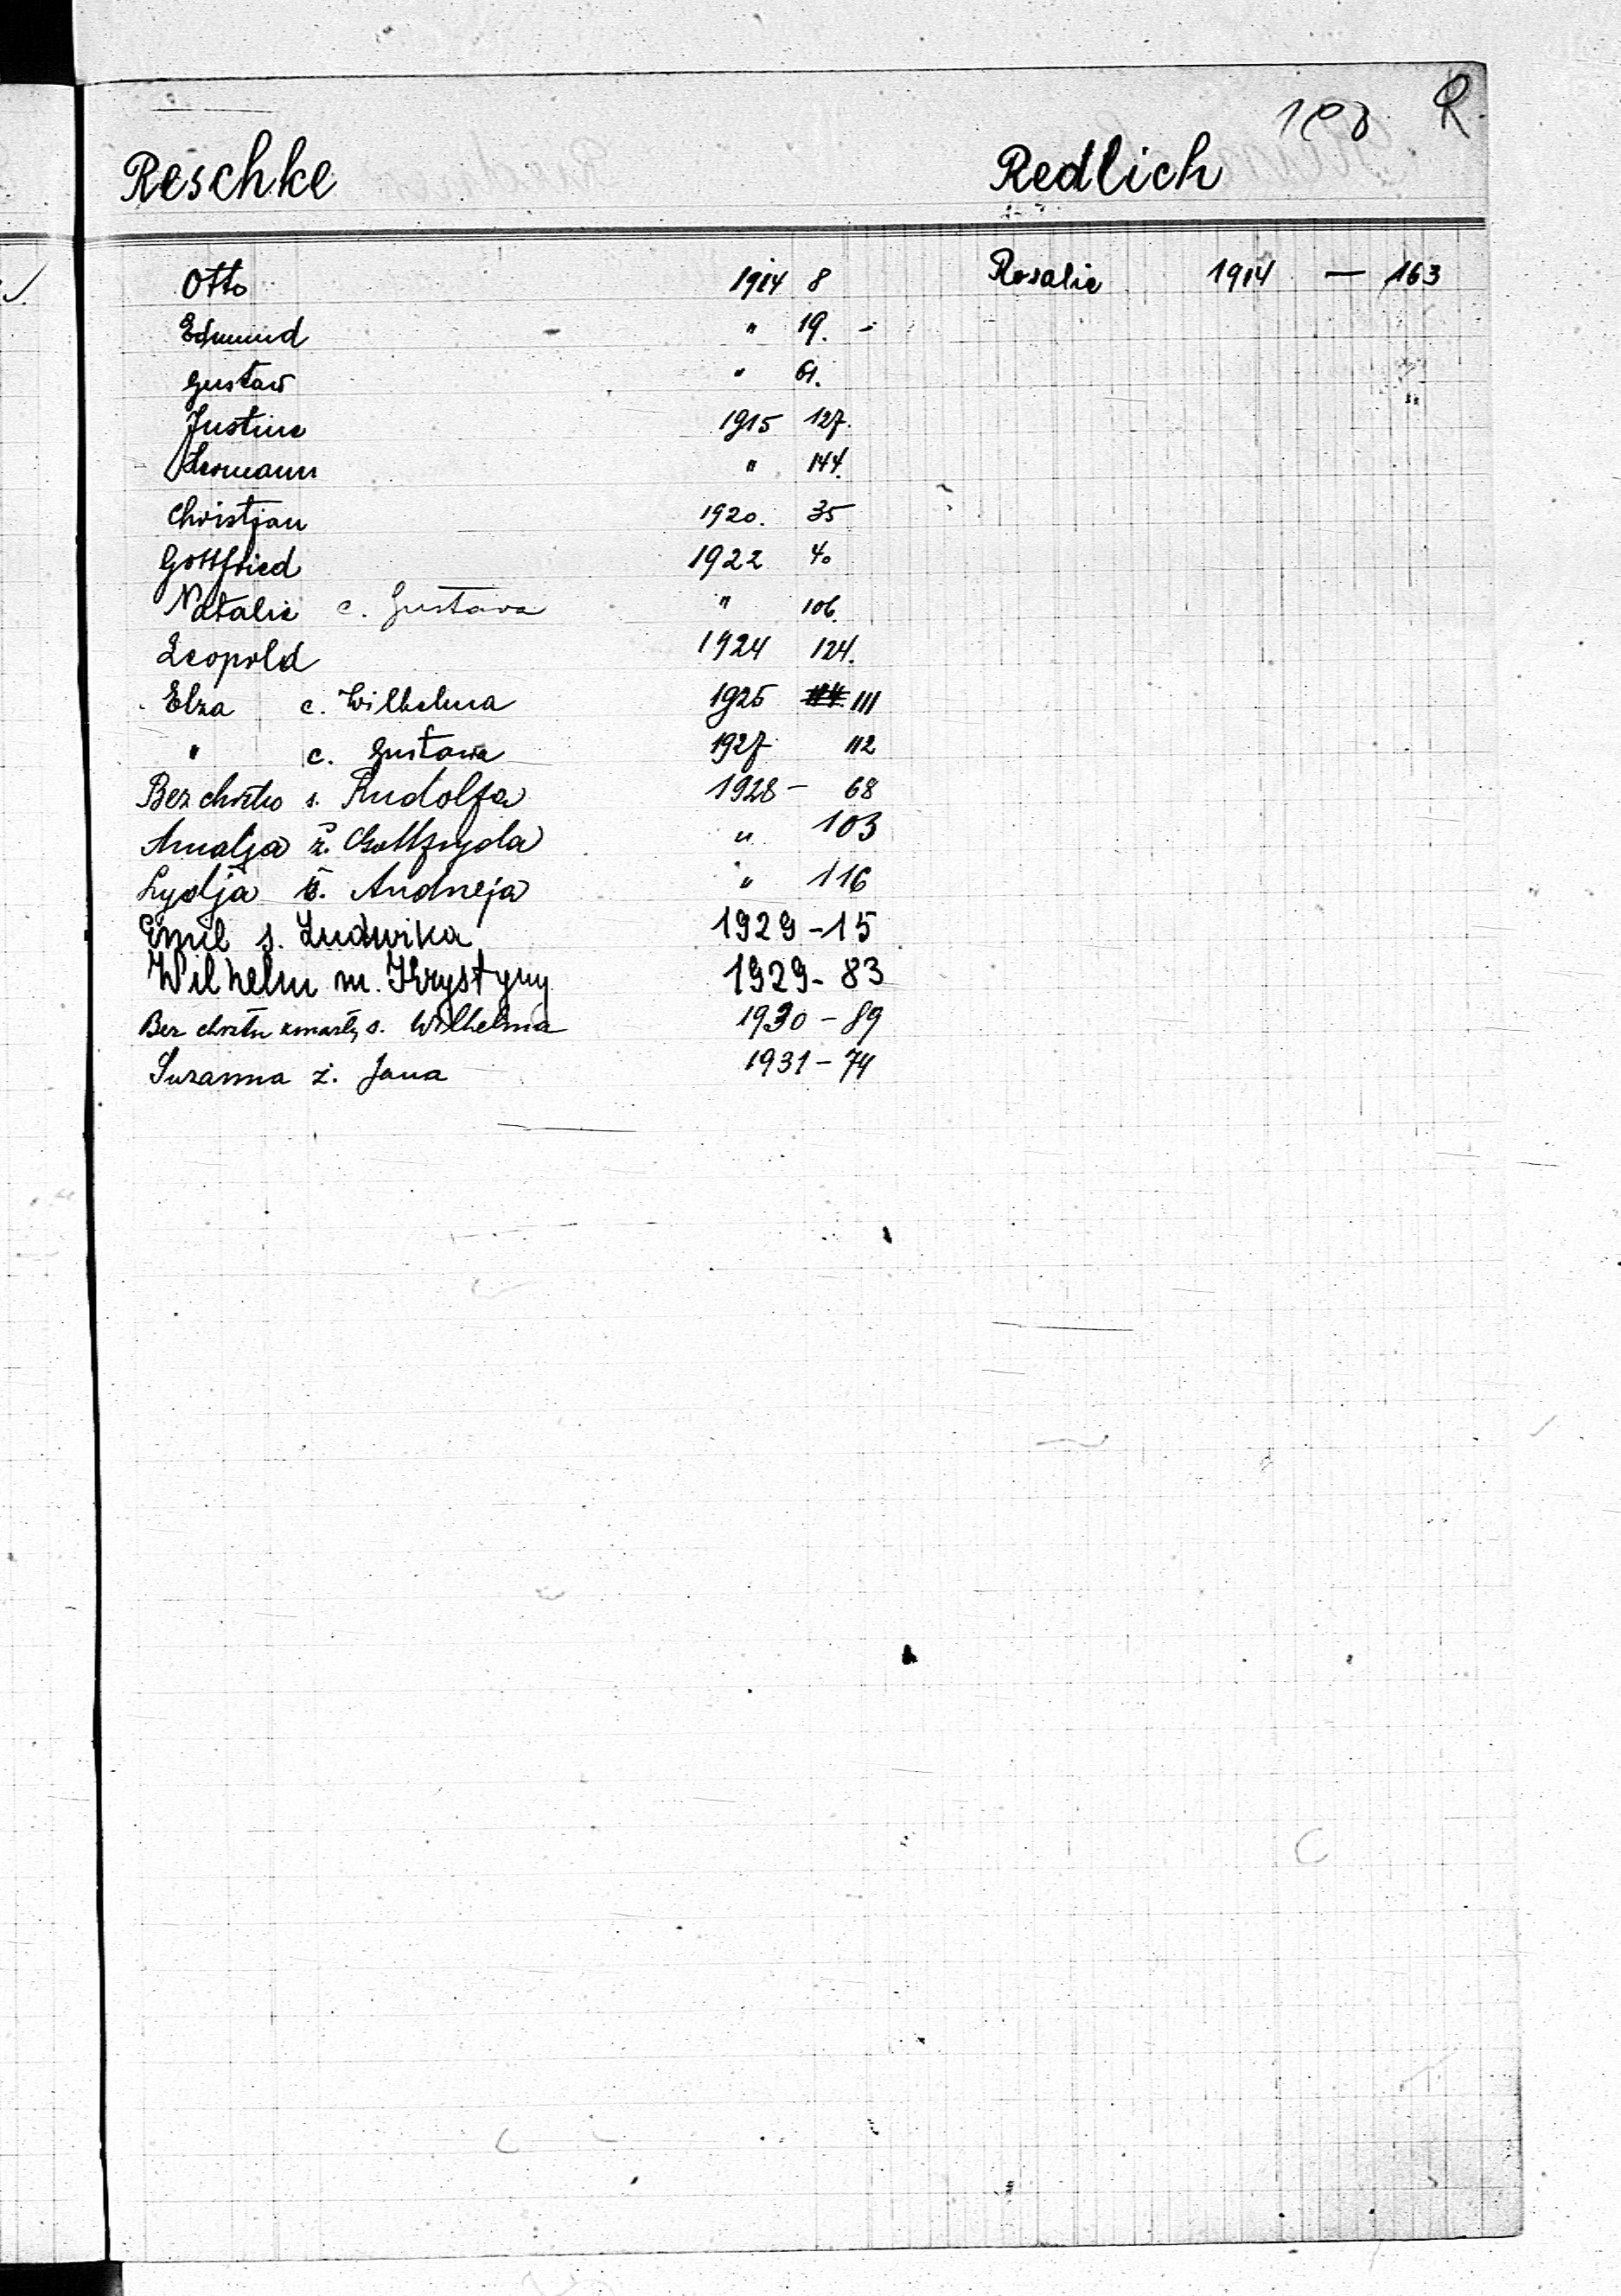 R
Reschke Redlich
Otto 1914 8 Rosalie 1914 — 163
Edmund " 19.
Gustaw " 61.
Justine 1915 127.
Hermann " 144.
Christjan 1920. 35
Gottfried 1922 40
Natalie c. Gustava " 106.
Leopold 1924 124.
Elza c. Wilhelma 1925 111
" c. Gustawa 1927 112
Bez chrztu s. Rudolfa 1928 — 68
Amalja ż. Gottfryda " 103
Lydja ż. Andrzeja " 116
Emil s. Ludwika 1929 - 15
Wilhelm m. Krystyny 1929 - 83
Bez chrztu zmarły s. Wilhelma 1930 - 89
Suzanna ż. Jana 1931 - 74